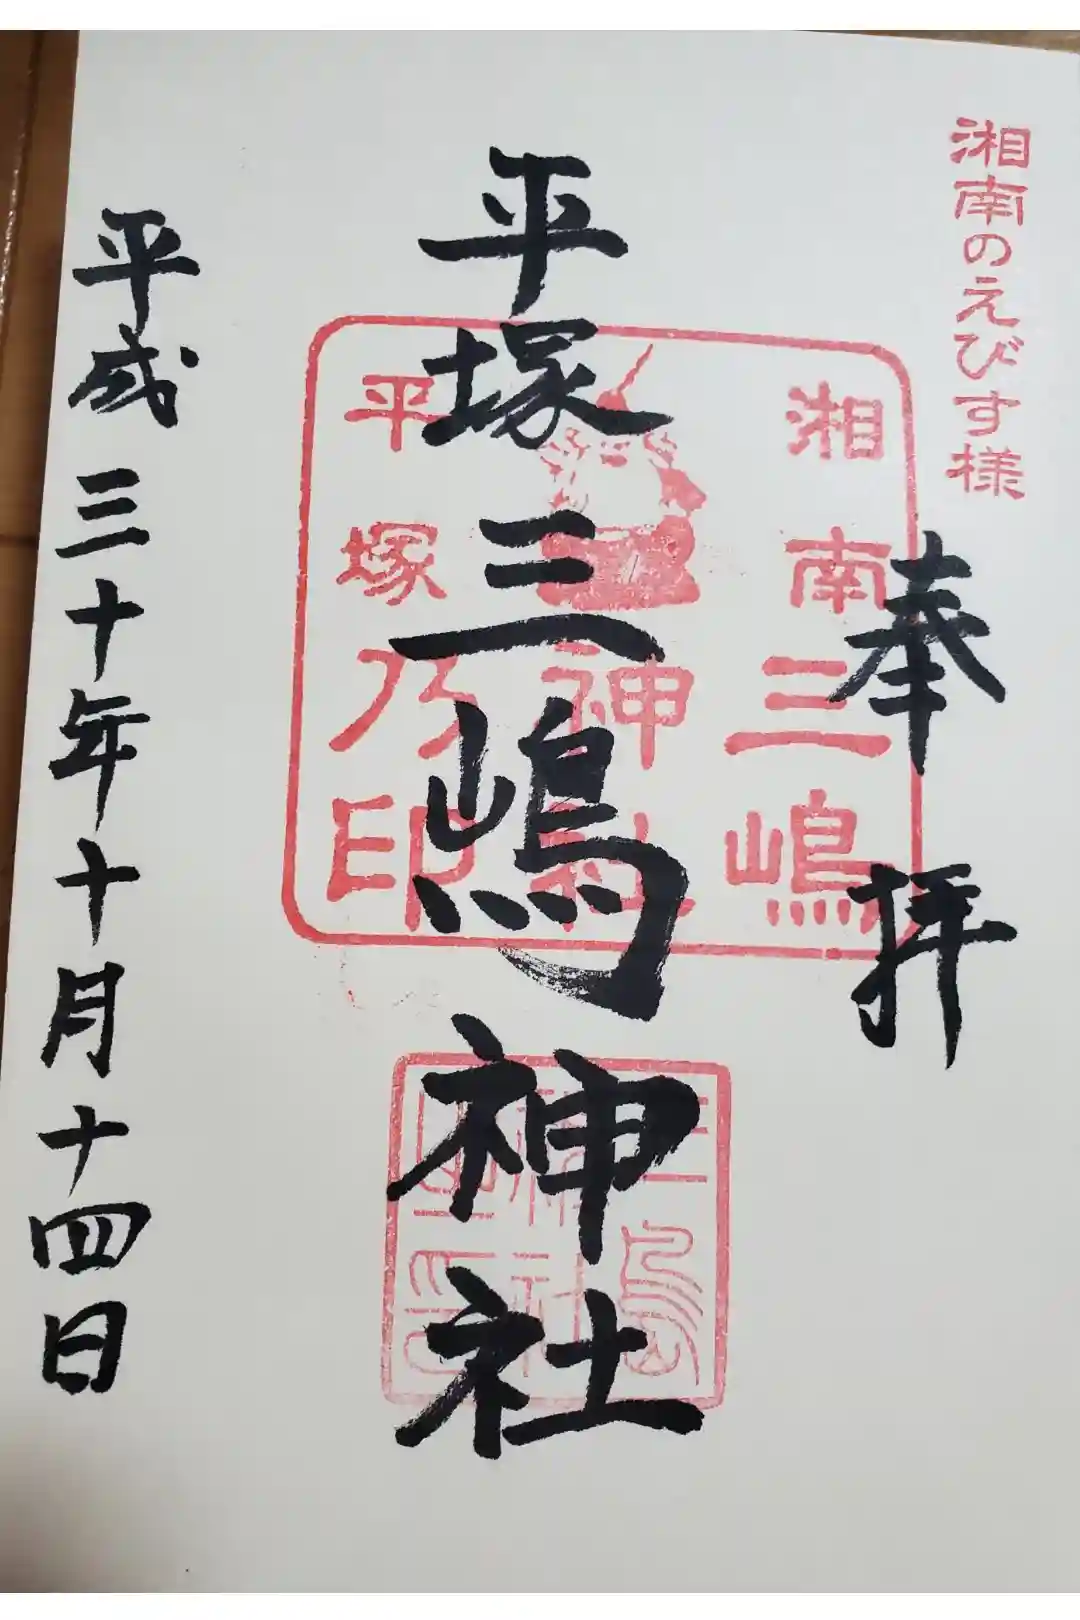 湘南のえびす様
奉拝
湘南三嶋
神社
平塚乃印
平塚三嶋神社
三嶋
神社
平成三十年十月十四日